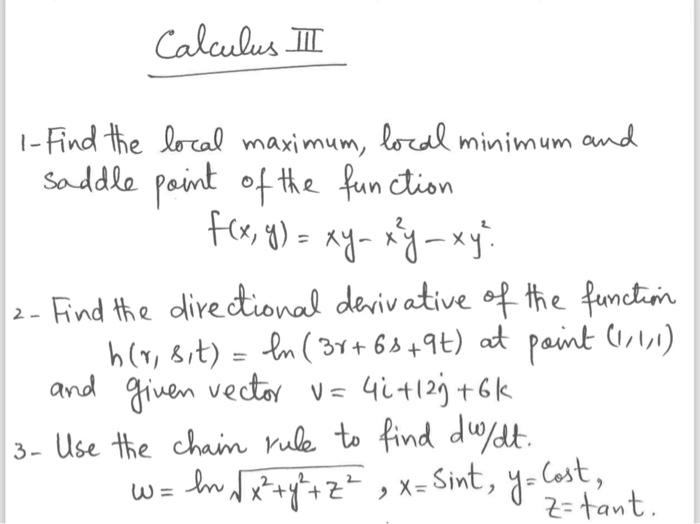 Calculus III
1- Find the local maximum, local minimum and
saddle point of the function
f(x, y) = xy - x²y - xy².
2 - Find the directional derivative of the function
h(r, s, t) = ln (3r + 6s + 9t) at point (1,1,1)
and given vector v = 4i + 12j + 6k
3 - Use the chain rule to find dw/dt.
w = ln √x² + y² + z² , x = Sint, y = Cost,
z = tant.